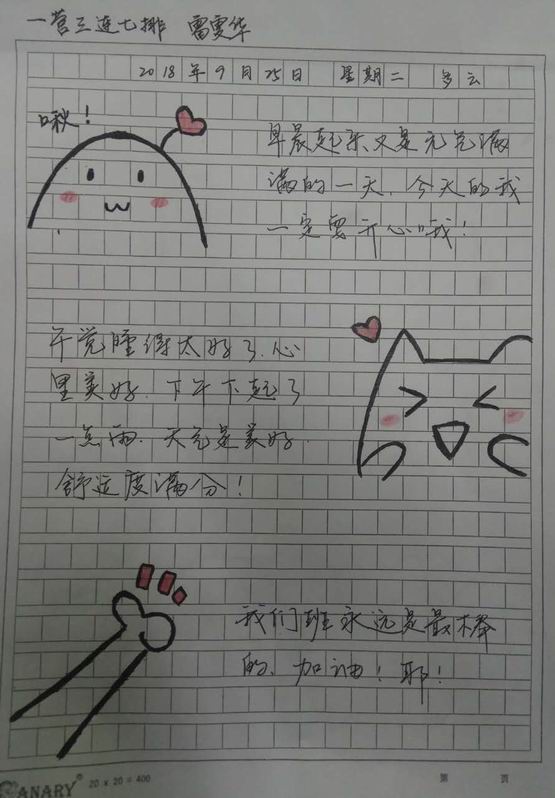 一营三连七排 雷雯华
2018年9月25日 星期二 多云
啾!
早晨起来又是元气满
满的一天,今天的我
一定要开心哦!
午觉睡得太好了,心
里美好,下午下起了
一点雨,天气是美好,
舒适度满分!
我们班永远是最棒
的,加油!耶!
CANARY® 20 x 20 = 400
第 页